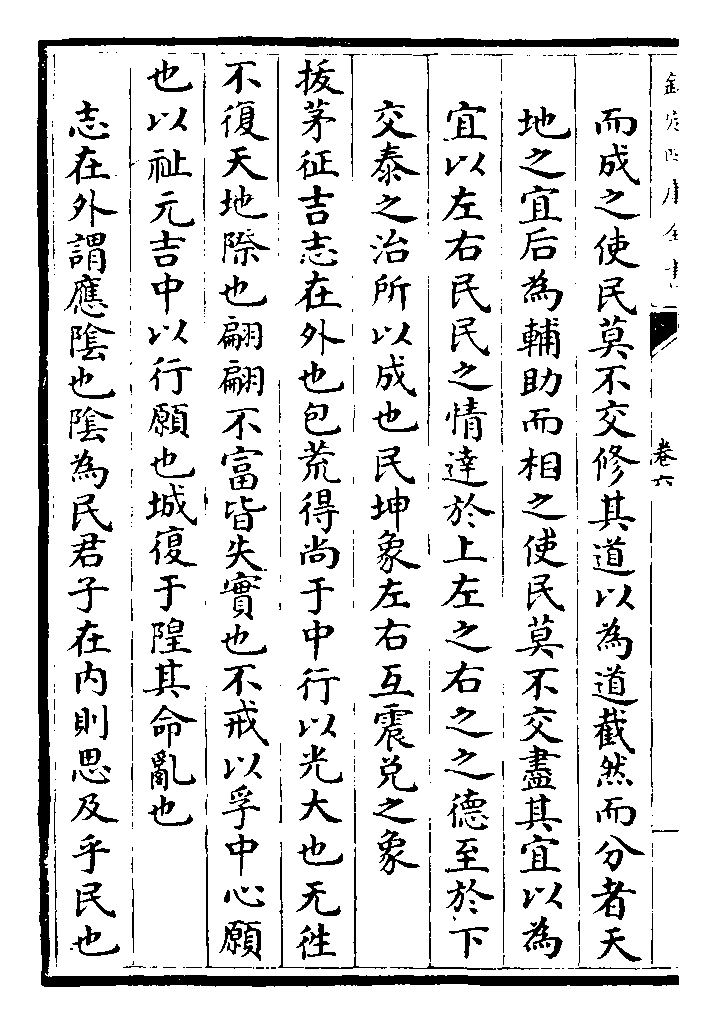 欽定四庫全書
卷六
而成之使民莫不交修其道以為道截然而分者天
地之宜后為輔助而相之使民莫不交盡其宜以為
宜以左右民民之情達於上左之右之之德至於下
交泰之治所以成也民坤象左右互震兌之象
拔茅征吉志在外也包荒得尚于中行以光大也无徃
不復天地際也翩翩不富皆失實也不戒以孚中心願
也以祉元吉中以行願也城復于隍其命亂也
志在外謂應隂也隂為民君子在内則思及乎民也